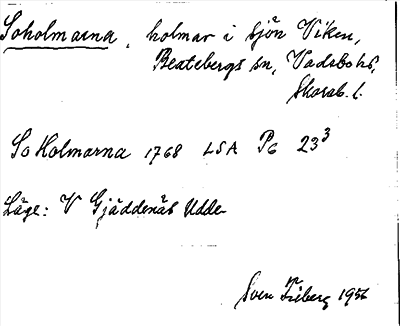 Soholmarna, holmar i sjön Viken,
Beatebergs sn, Vadsbo hd,
Skarab. l.
So Holmarna 1768 LSA P6 23³
Läge: V Gjäddenäs Udde
Sven Fileberg 1956